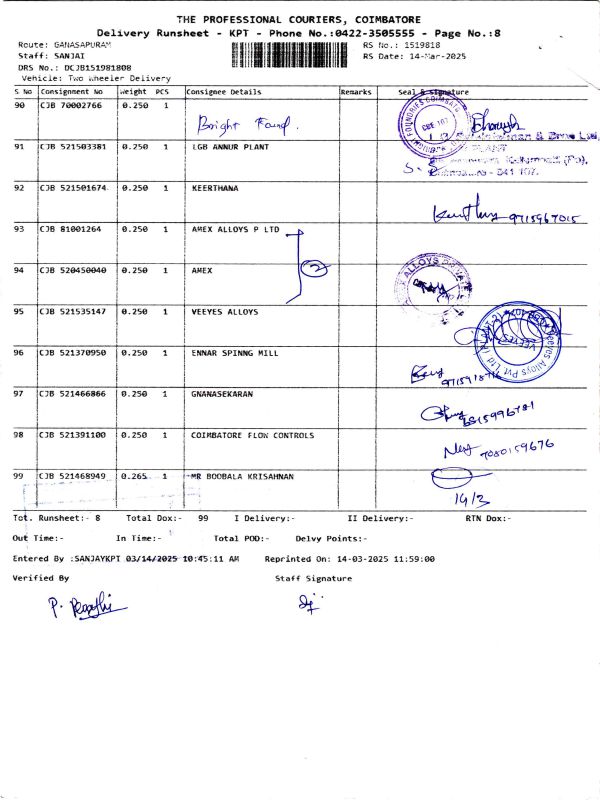 THE PROFESSIONAL COURIERS, COIMBATORE
Delivery Runsheet - KPT - Phone No.:0422-3505555 - Page No.:8
Route: GANASAPURAM RS No.: 1519818
Staff: SANJAI RS Date: 14-Mar-2025
DRS No.: DCJB151981808
Vehicle: Two Wheeler Delivery
S No Consignment No Weight PCS Consignee Details Remarks Seal & Signature
90 CJB 70002766 0.250 1
Bright Found.
91 CJB 521503381 0.250 1 LGB ANNUR PLANT
641 107.
92 CJB 521501674 0.250 1 KEERTHANA
9715967015
93 CJB 81001264 0.250 1 AMEX ALLOYS P LTD
2
94 CJB 520450040 0.250 1 AMEX
95 CJB 521535147 0.250 1 VEEYES ALLOYS
Veeyes Alloys Pvt. Ltd
VEEYES
96 CJB 521370950 0.250 1 ENNAR SPINNG MILL
97 CJB 521466866 0.250 1 GNANASEKARAN
98 CJB 521391100 0.250 1 COIMBATORE FLOW CONTROLS
7080159676
99 CJB 521468949 0.265 1 MR BOOBALA KRISAHNAN
14/3
Tot. Runsheet:- 8 Total Dox:- 99 I Delivery:- II Delivery:- RTN Dox:-
Out Time:- In Time:- Total POD:- Delvy Points:-
Entered By :SANJAYKPT 03/14/2025 10:45:11 AM Reprinted On: 14-03-2025 11:59:00
Verified By Staff Signature